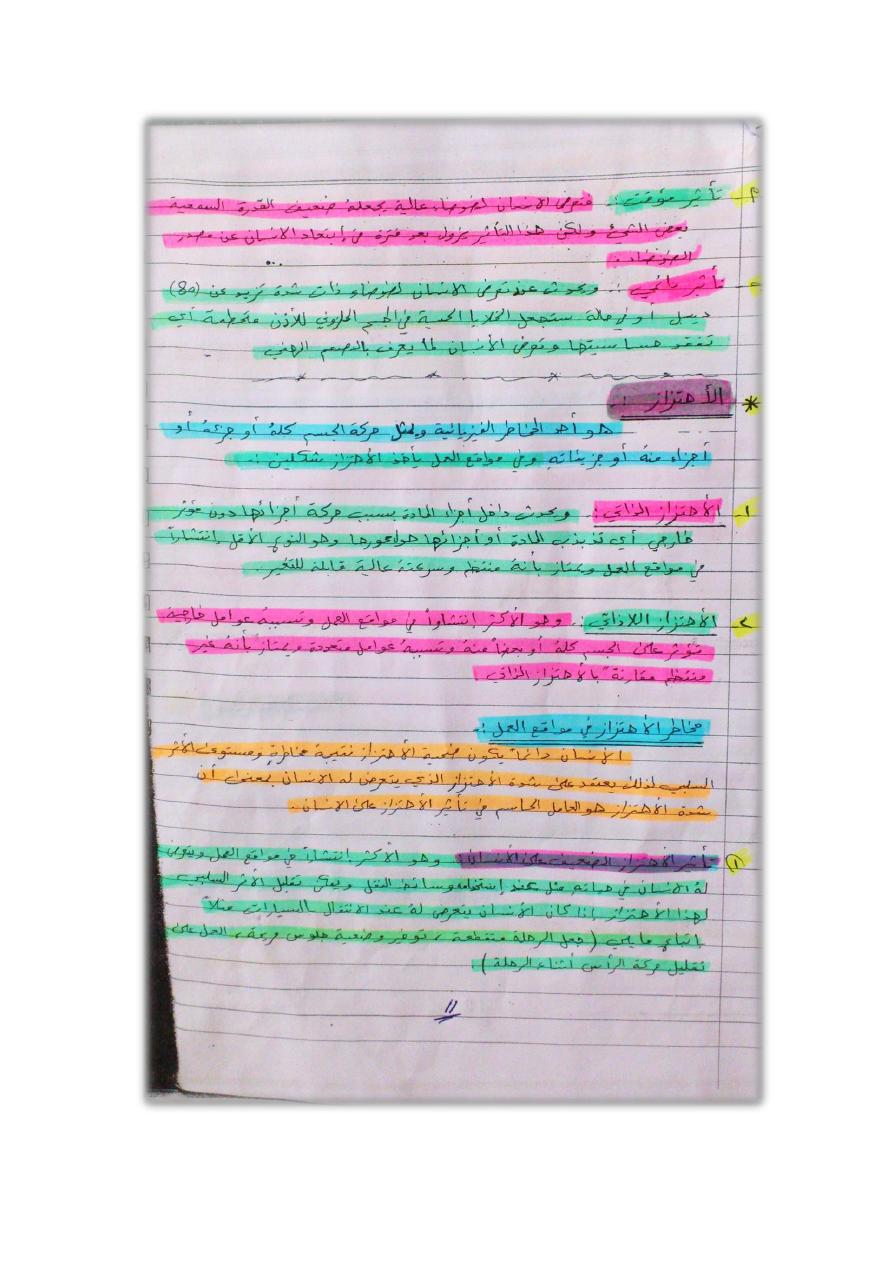 م- تأثير مؤقت :- فتعرض الانسان لضوضاء عالية يجعله ضعيف القدرة السمعية
بعض الشيئ ولكن هذا التأثير يزول بعد فترة من إبتعاد الانسان عن مصدر
الضوضاء .
تأثير دائمي :- ويحدث عند تعرض الانسان لضوضاء ذات شدة تزيد عن (80)
ديسبل أو في حالة ستجعل الخلايا الحسية في الجسم الحلزوني للأذن متحطمة أي
تفقد حساسيتها وتعرض الأنسان لما يعرف بالصمم المهني
* الأهتزاز :-
هو أحد المخاطر الفيزيائية ويمثل حركة الجسم كله أو جزءه أو
أجزاء منه أو جزيئاته وفي مواقع العمل يأخذ الأهتزاز شكلين :-
١- الأهتزاز الذاتي :- ويحدث داخل أجزاء المادة بسبب حركة أجزائها دون مؤثر
خارجي أي تذبذب المادة أو أجزائها حول محورها وهو النوع الأقل إنتشاراً
في مواقع العمل ويمتاز بأنه منتظم وسرعته عالية قابلة للتغير .
٢- الأهتزاز اللاذاتي :- وهو الأكثر إنتشاراً في مواقع العمل وتسببه عوامل خارجية
تؤثر على الجسم كله أو بعضاً منه وتسببه عوامل متعددة ويمتاز بأنه غير
منتظم مقارنة بالأهتزاز الذاتي .
مخاطر الأهتزاز في مواقع العمل :-
الأنسان دائماً يكون ضحية الأهتزاز نتيجة مخاطره ومستوى الأثر
السلبي لذلك يعتمد على شدة الأهتزاز الذي يتعرض له الانسان بمعنى أن
شدة الأهتزاز هو العامل الحاسم في تأثير الأهتزاز على الانسان .
① تأثير الأهتزاز الضعيف على الأنسان :- وهو الأكثر إنتشاراً في مواقع العمل ويتعرض
له الانسان في حياته مثل عند إستخدامه وسائط النقل ويمكن تقليل الأثر السلبي
لهذا الأهتزاز إذا كان الأنسان يتعرض له عند الانتقال بالسيارات مثلاً
إتباع مايلي (جعل الرحلة متقطعة ، توفير وضعية جلوس مريحة ، العمل على
تقليل حركة الرأس أثناء الرحلة ) .
11